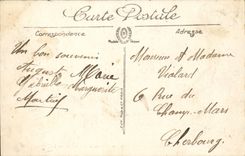 Carte Postale
Correspondance
Adresse
Un bon souvenir
Auguste Marie
Marguerite
Monsieur et Madame
Vialard
6 Rue du
Champ-Mars
Cherbourg